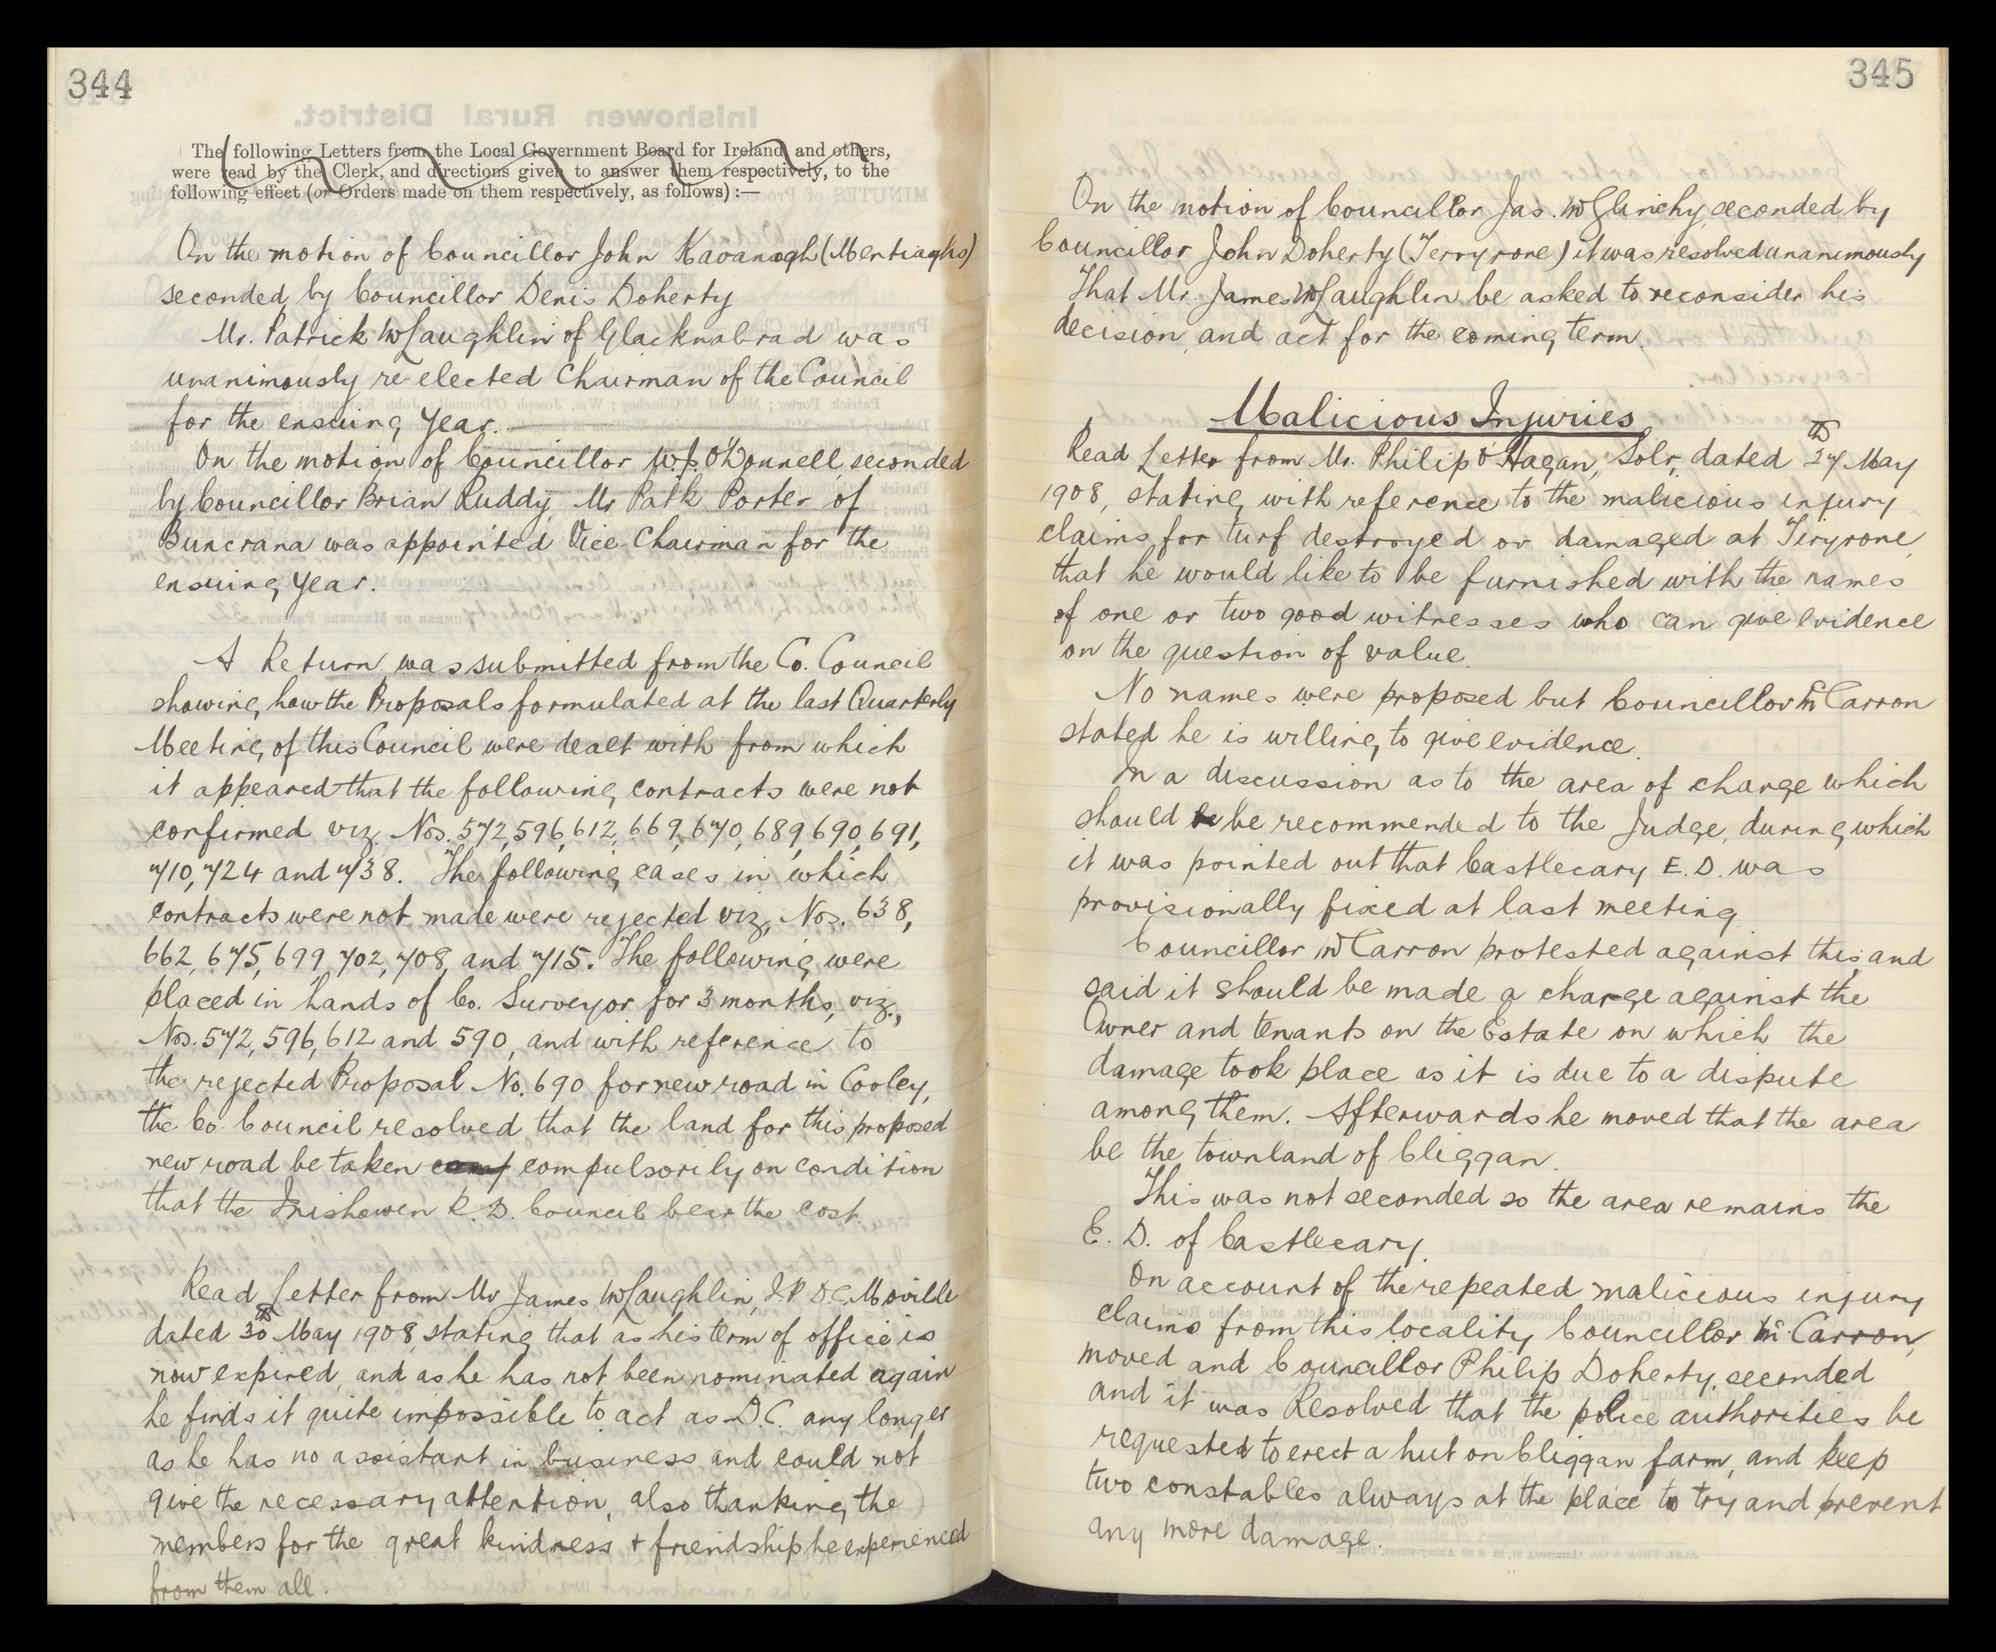 344
The following Letters from the Local Government Board for Ireland and others,
were read by the Clerk, and directions given to answer them respectively, to the
following effect (or Orders made on them respectively, as follows) :—
On the motion of Councillor John Kavanagh (Mentiaghs)
seconded by Councillor Denis Doherty
Mr. Patrick McLaughlin of Glacknabrad was
unanimously re-elected Chairman of the Council
for the ensuing year.
On the motion of Councillor W.J. O'Donnell, seconded
by Councillor Brian Ruddy, Mr Patk Porter of
Buncrana was appointed Vice-Chairman for the
ensuing year.
A Return was submitted from the Co. Council
showing how the Proposals formulated at the last Quarterly
Meeting of this Council were dealt with from which
it appeared that the following contracts were not
confirmed viz. Nos. 572, 596, 612, 669, 670, 689, 690, 691,
710, 724 and 738. The following cases in which
contracts were not made were rejected viz, Nos. 638,
662, 675, 699, 702, 708, and 715. The following were
placed in hands of Co. Surveyor for 3 months, viz.,
Nos. 572, 596, 612 and 590, and with reference to
the rejected Proposal No. 690 for new road in Cooley,
the Co. Council resolved that the land for this proposed
new road be taken comp compulsorily on condition
that the Inishowen R. D. Council bear the cost.
Read Letter from Mr James McLaughlin, J.P. D.C. Moville
dated 30th May 1908, stating that as his term of office is
now expired, and as he has not been nominated again
he finds it quite impossible to act as D.C. any longer
as he has no assistant in business and could not
give the necessary attention, also thanking the
members for the great kindness + friendship he experienced
from them all.
345
On the motion of Councillor Jas. McGlinchy, seconded by
Councillor John Doherty (Terryrone) it was resolved unanimously
That Mr. James McLaughlin be asked to reconsider his
decision, and act for the coming term.
Malicious Injuries
Read Letter from Mr. Philip O'Hagan, Solr, dated 27th May
1908, stating with reference to the malicious injury
claims for turf destroyed or damaged at Tiryrone,
that he would like to be furnished with the names
of one or two good witnesses who can give evidence
on the question of value.
No names were proposed but Councillor McCarron
stated he is willing to give evidence.
In a discussion as to the area of charge which
should be be recommended to the Judge, during which
it was pointed out that Castlecary E. D. was
provisionally fixed at last meeting
Councillor McCarron protested against this, and
said it should be made a charge against the
Owner and tenants on the Estate on which the
damage took place as it is due to a dispute
among them. Afterwards he moved that the area
be the townland of Cliggan.
This was not seconded so the area remains the
E. D. of Castlecary.
On account of the repeated malicious injury
claims from this locality Councillor McCarron,
moved and Councillor Philip Doherty, seconded
and it was Resolved that the police authorities be
requested to erect a hut on Cliggan farm, and keep
two constables always at the place to try and prevent
any more damage.